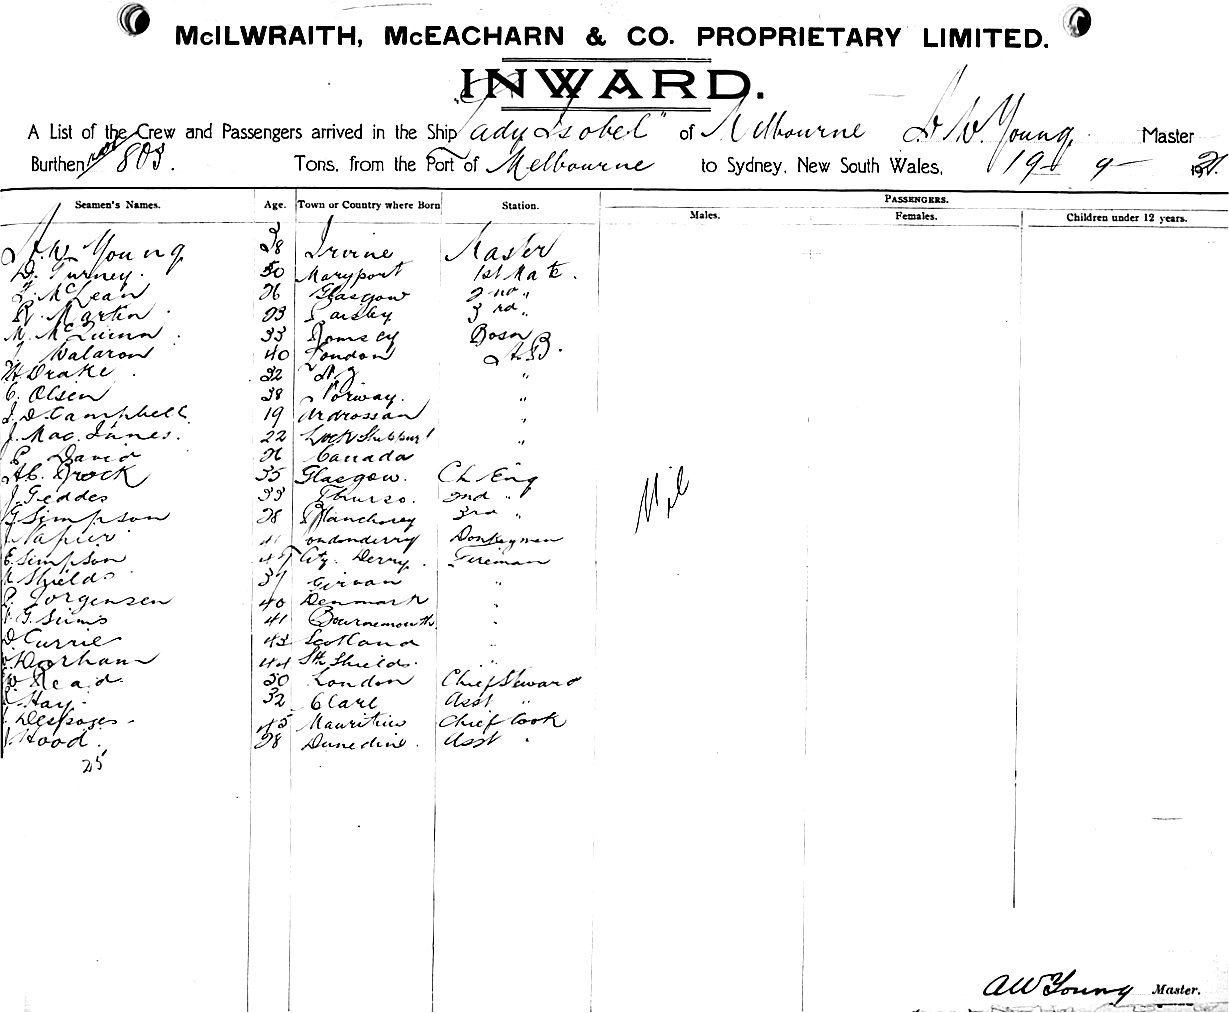 McILWRAITH, McEACHARN & CO. PROPRIETARY LIMITED.
INWARD.
A List of the Crew and Passengers arrived in the Ship "Lady Isobel" of Melbourne A W Young, Master
Burthen 803. Tons, from the Port of Melbourne to Sydney, New South Wales, 19 - 9 - 1921.
Seamen's Names. Age. Town or Country where Born Station. PASSENGERS.
Males. Females. Children under 12 years.
A. W. Young 38 Irvine Master
D. Turney. 50 Maryport 1st Mate.
McLean 26 Glasgow 2nd "
R. Martin. 23 Paisley 3rd "
M. McQuinn 33 Romsey Bosn
J Walaron 40 London A.B.
H Drake. 32 N Z "
C. Olsen 38 Norway. "
J. D. Campbell 19 Ardrossan "
J. Mac. Innes. 22 "
P. David 26 Canada
A C. Brock 35 Glasgow. Ch Eng
J. Geddes 33 Thurso. 2nd "
G Simpson 28 Blanchorey 3rd "
J Napier 41 Londonderry Donkeyman
E. Simpson 47 City. Derry. Fireman
Shields 37 Girvan "
P. Jorgensen 40 Denmark "
G. Sims 41 Bournemouth "
D. Currie 43 Scotland "
Doorham 44 Sth Shields. "
W Read. 50 London Chief Steward
Hay. 32 Clare Asst "
Desroges. 45 Mauritius Chief Cook
J Hood. 28 Dunedine. Asst "
25
Nil
AW Young Master.